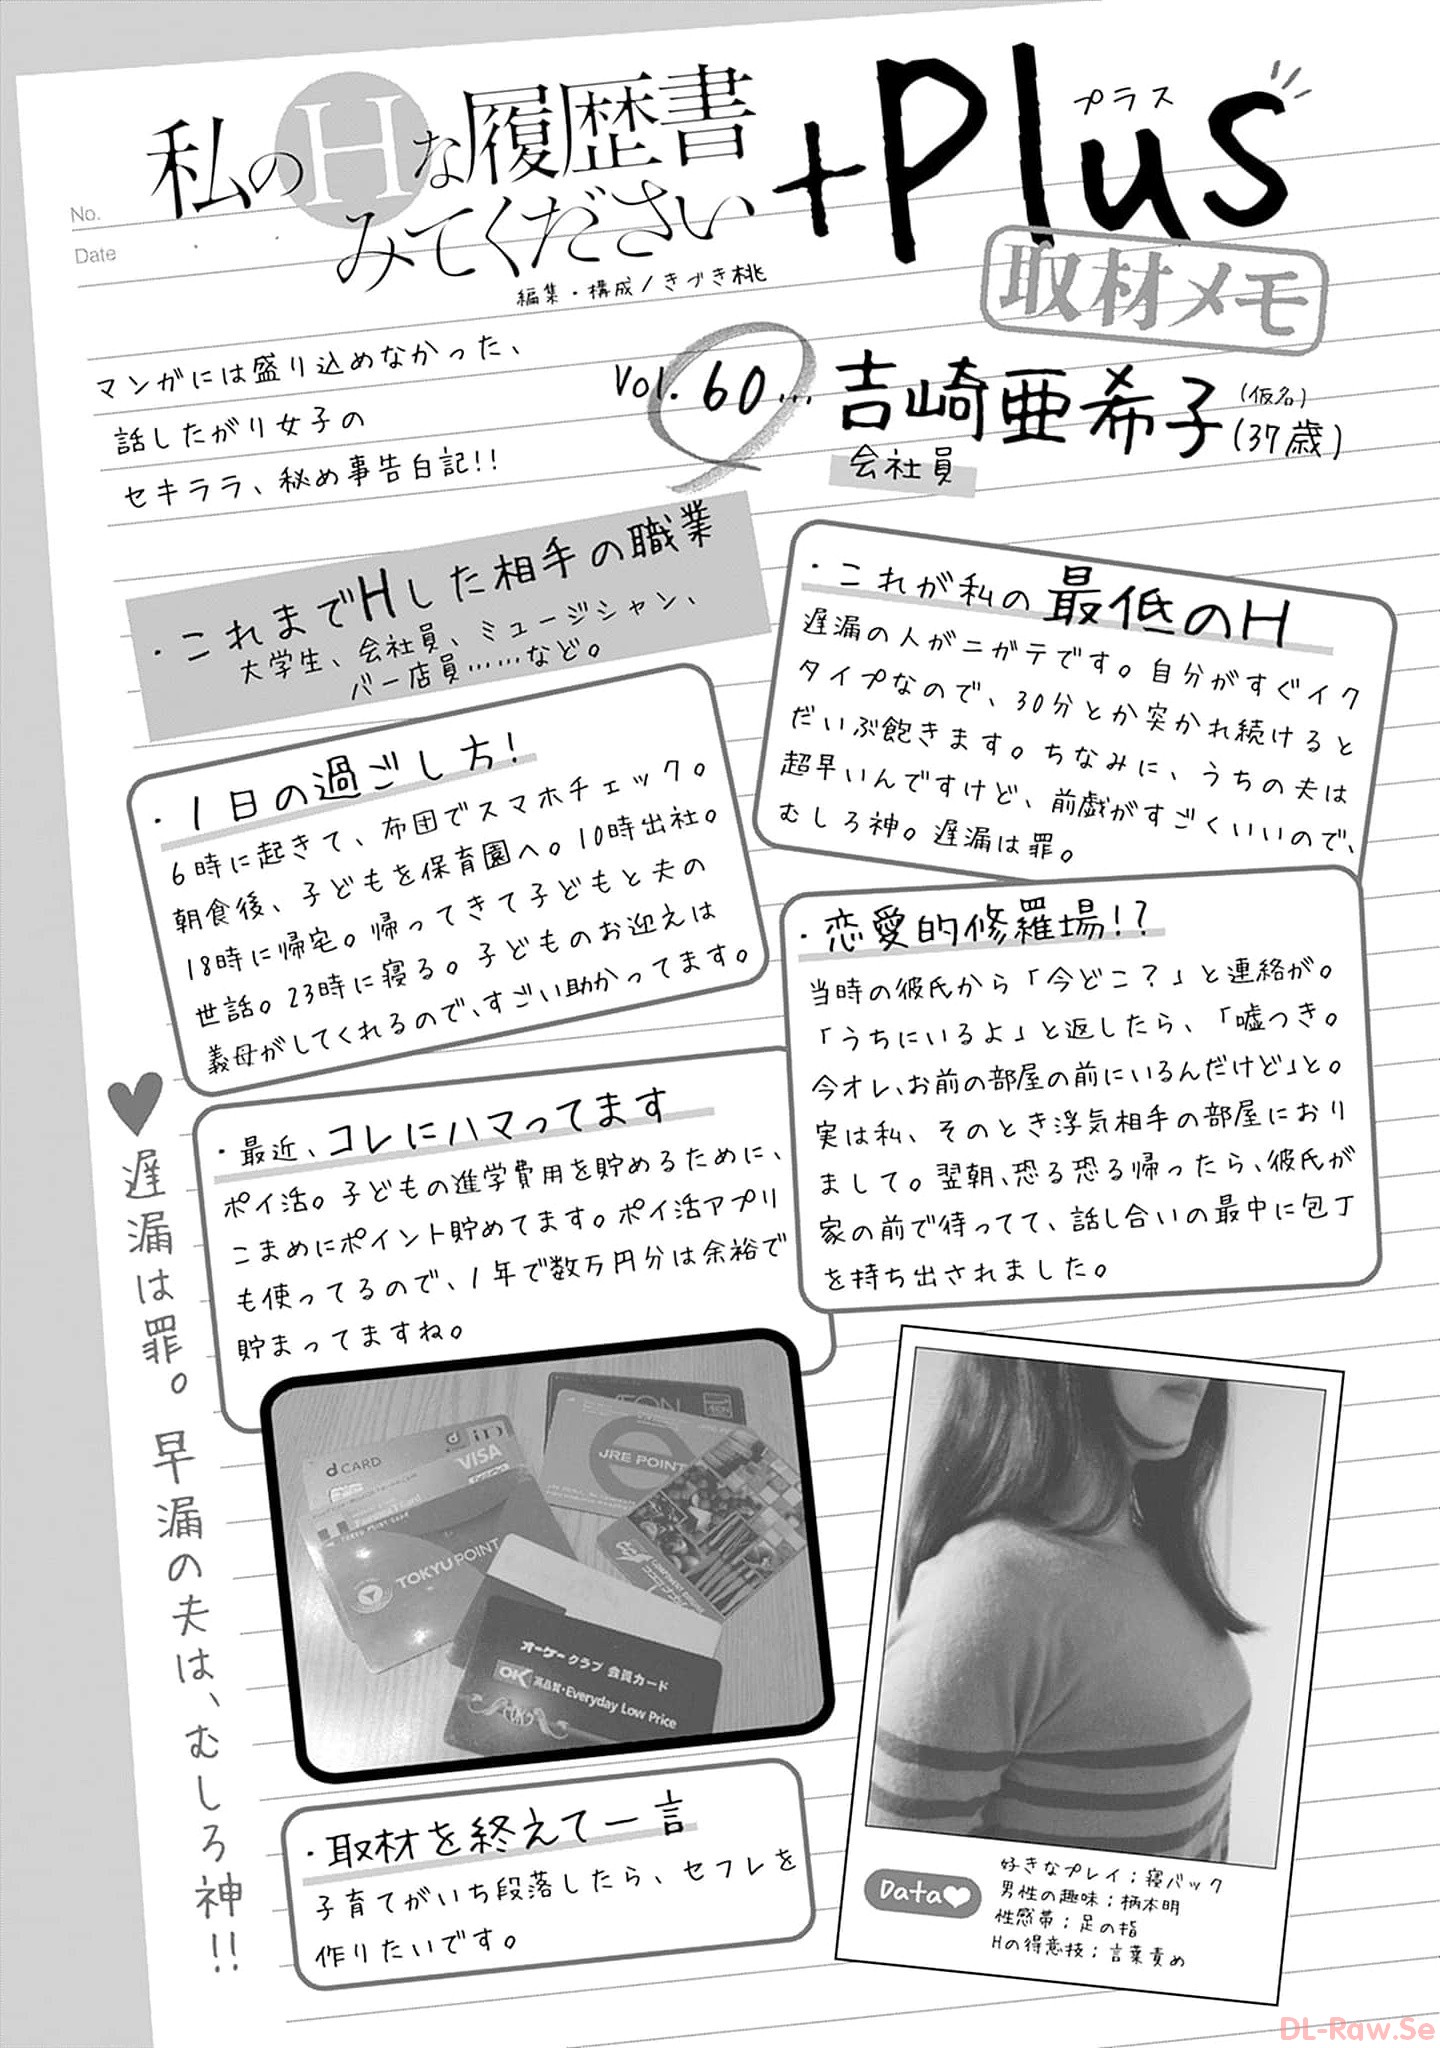 No.
Date
私のHな履歴書
みてください
+Plus
プラス
編集・構成/きづき桃
取材メモ
マンガには盛り込めなかった、
話したがり女子の
セキララ、秘め事告白記!!
Vol.60…
吉崎亜希子
(仮名)
(37歳)
会社員
・これまでHした相手の職業
大学生、会社員、ミュージシャン、
バー店員……など。
・これが私の最低のH
遅漏の人がニガテです。自分がすぐイク
タイプなので、30分とか突かれ続けると
だいぶ飽きます。ちなみに、うちの夫は
超早いんですけど、前戯がすごくいいので、
むしろ神。遅漏は罪。
・1日の過ごし方!
6時に起きて、布団でスマホチェック。
朝食後、子どもを保育園へ。10時出社。
18時に帰宅。帰ってきて子どもと夫の
世話。23時に寝る。子どものお迎えは
義母がしてくれるので、すごい助かってます。
・恋愛的修羅場!?
当時の彼氏から「今どこ?」と連絡が。
「うちにいるよ」と返したら、「嘘つき。
今オレ、お前の部屋の前にいるんだけど」と。
実は私、そのとき浮気相手の部屋におり
まして。翌朝、恐る恐る帰ったら、彼氏が
家の前で待ってて、話し合いの最中に包丁
を持ち出されました。
・最近、コレにハマってます
ポイ活。子どもの進学費用を貯めるために、
こまめにポイント貯めてます。ポイ活アプリ
も使ってるので、1年で数万円分は余裕で
貯まってますね。
♥遅漏は罪。早漏の夫は、むしろ神!!
AEON
JRE POINT
d CARD
iD
VISA
TOKYU POINT
オーケークラブ 会員カード
OK 高品質・Everyday Low Price
・取材を終えて一言
子育てがいち段落したら、セフレを
作りたいです。
Data♥
好きなプレイ;寝バック
男性の趣味;柄本明
性感帯;足の指
Hの得意技;言葉責め
DL-Raw.Se